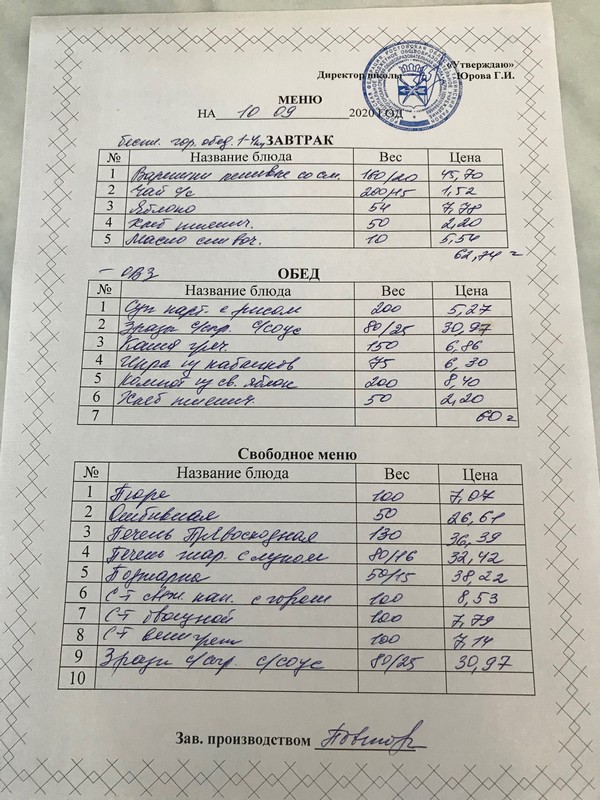 «Утверждаю»
Директор школы Юрова Г.И.
МЕНЮ
НА 10 09 2020 ГОД
беспл. гор. обед. 1-4 кл ЗАВТРАК
№ Название блюда Вес Цена
1 Вареники ленивые со см. 160/20 45,70
2 Чай с/с 200/15 1,52
3 Яблоко 54 7,78
4 Хлеб пшенич. 50 2,20
5 Масло сливоч. 10 5,54
62,74
- ОВЗ ОБЕД
№ Название блюда Вес Цена
1 Суп карт. с рисом 200 5,27
2 Зразы с/соус 80/25 30,97
3 Каша греч. 150 6,86
4 Икра из кабачков 75 6,30
5 Компот из св. яблок 200 8,40
6 Хлеб пшенич. 50 2,20
7 60
Свободное меню
№ Название блюда Вес Цена
1 Пюре 100 7,07
2 Отбивная 50 26,61
3 Печень 130 36,39
4 Печень жар. с луком 80/16 32,42
5 Поджарка 50/15 38,22
6 С-т свеж. кап. с горош 100 8,53
7 С-т 100 7,79
8 С-т винегрет 100 7,14
9 Зразы с/соус 80/25 30,97
10
Зав. производством